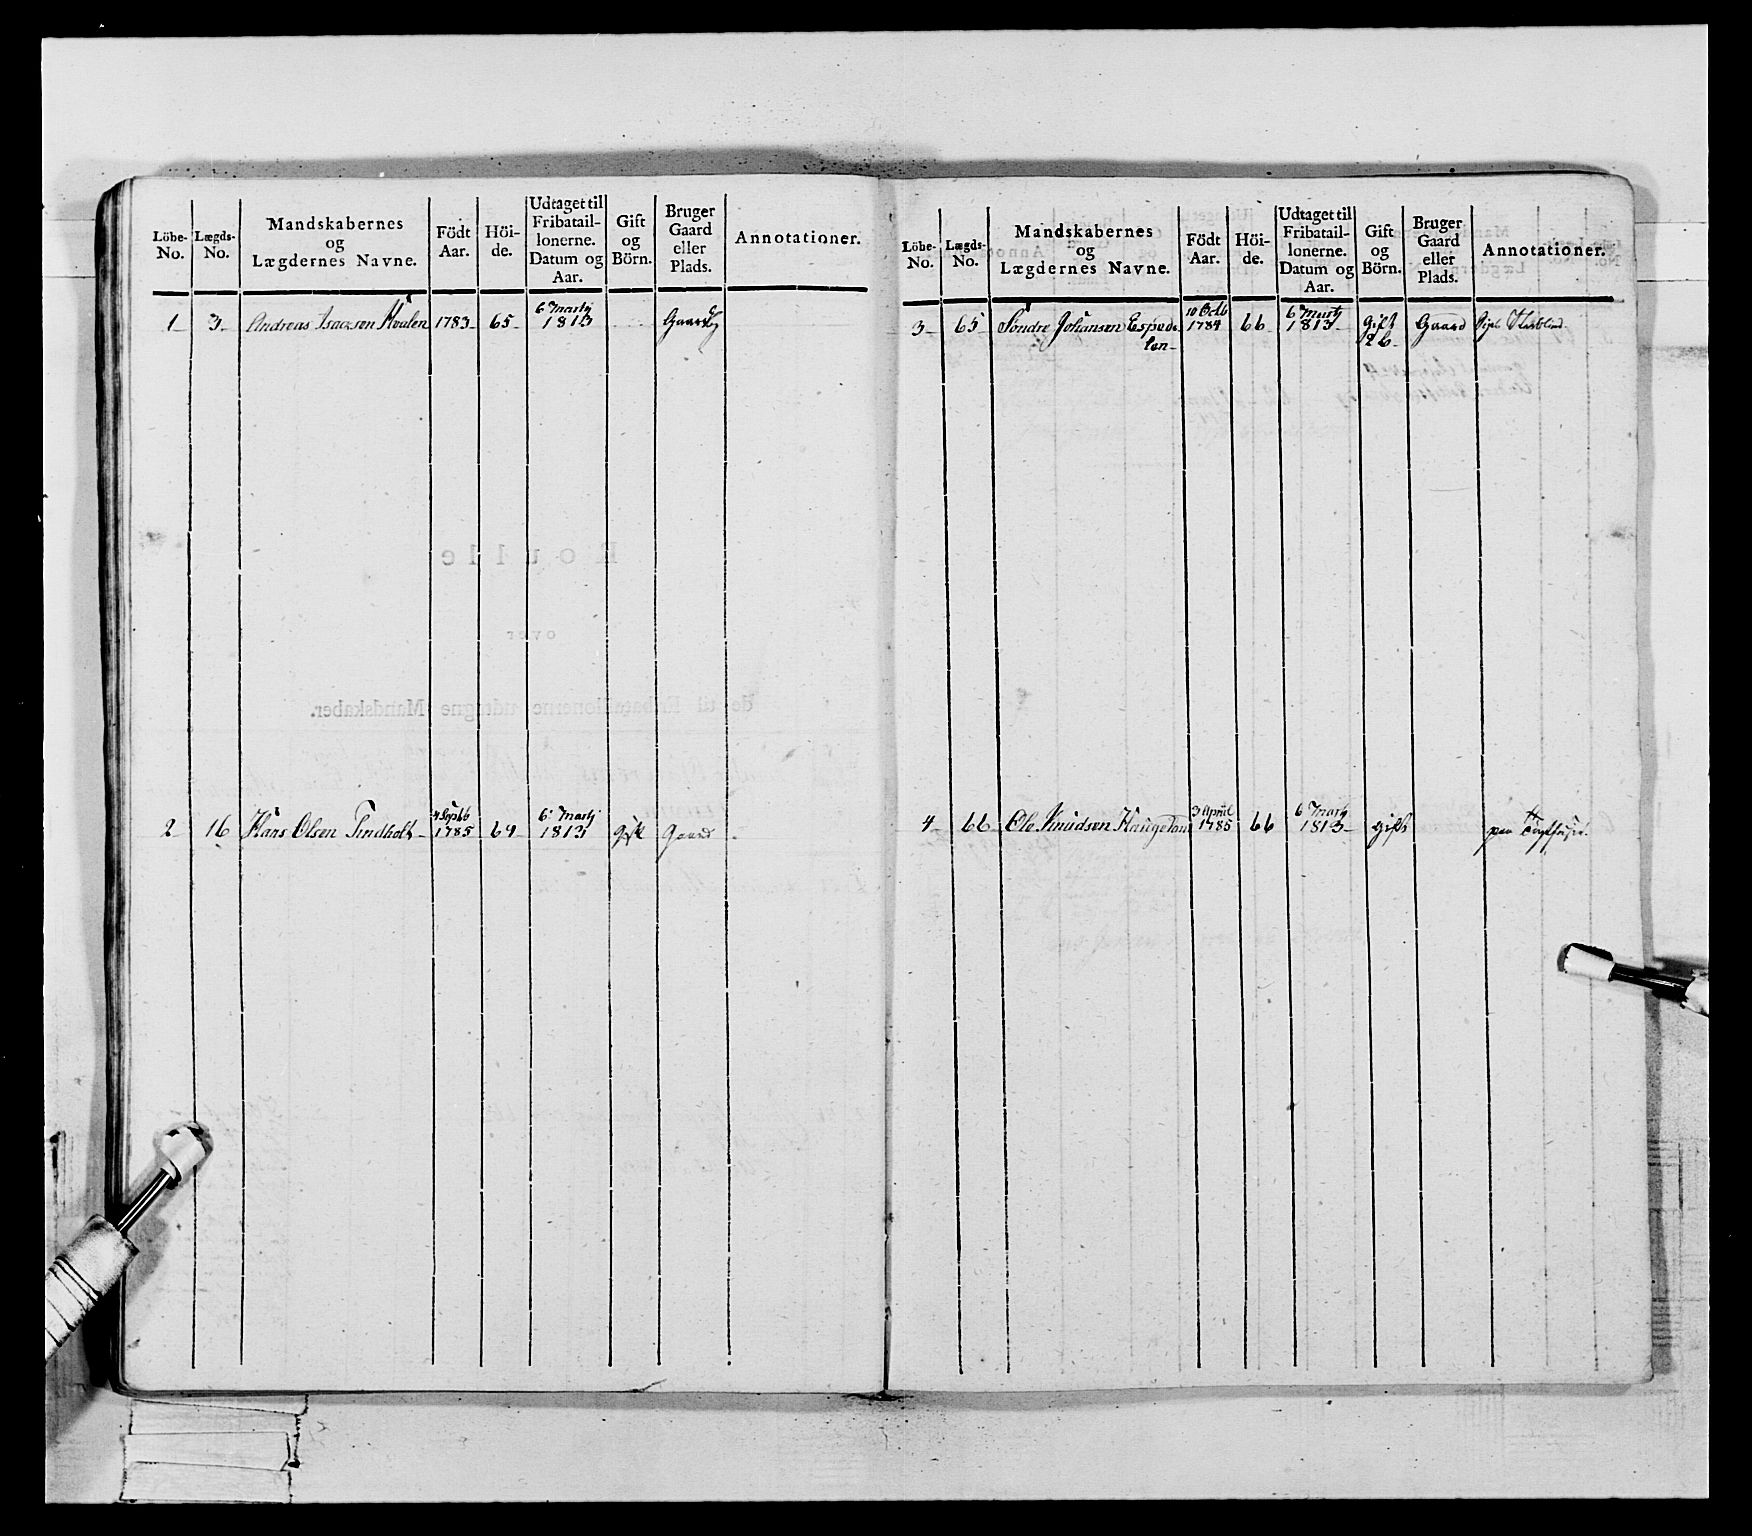 Löbe-No. Lægds-No. Mandskabernes og Lægdernes Navne. Födt Aar. Höi-de. Udtaget til Fribatail-lonerne. Datum og Aar. Gift og Börn. Bruger Gaard eller Plads. Annotationer.
1 3 Andreas Isacsen 1783 65 6 Martj 1813
2 16 Hans Olsen Tindholt 4 Septb 1785 64 6 Martj 1813 gift Gaard
Löbe-No. Lægds-No. Mandskabernes og Lægdernes Navne. Födt Aar. Höi-de. Udtaget til Fribatail-lonerne. Datum og Aar. Gift og Börn. Bruger Gaard eller Plads. Annotationer.
3 65 Söndre Johansen Espede 10 Octb 1784 66 6 Martj 1813 gift Gaard
len 2 b
4 66 Ole Knudsen 3 April 1785 66 6 Martj 1813 gift paa
Roulle
over
de til Fribataillonerne udtagne Mandskaber.